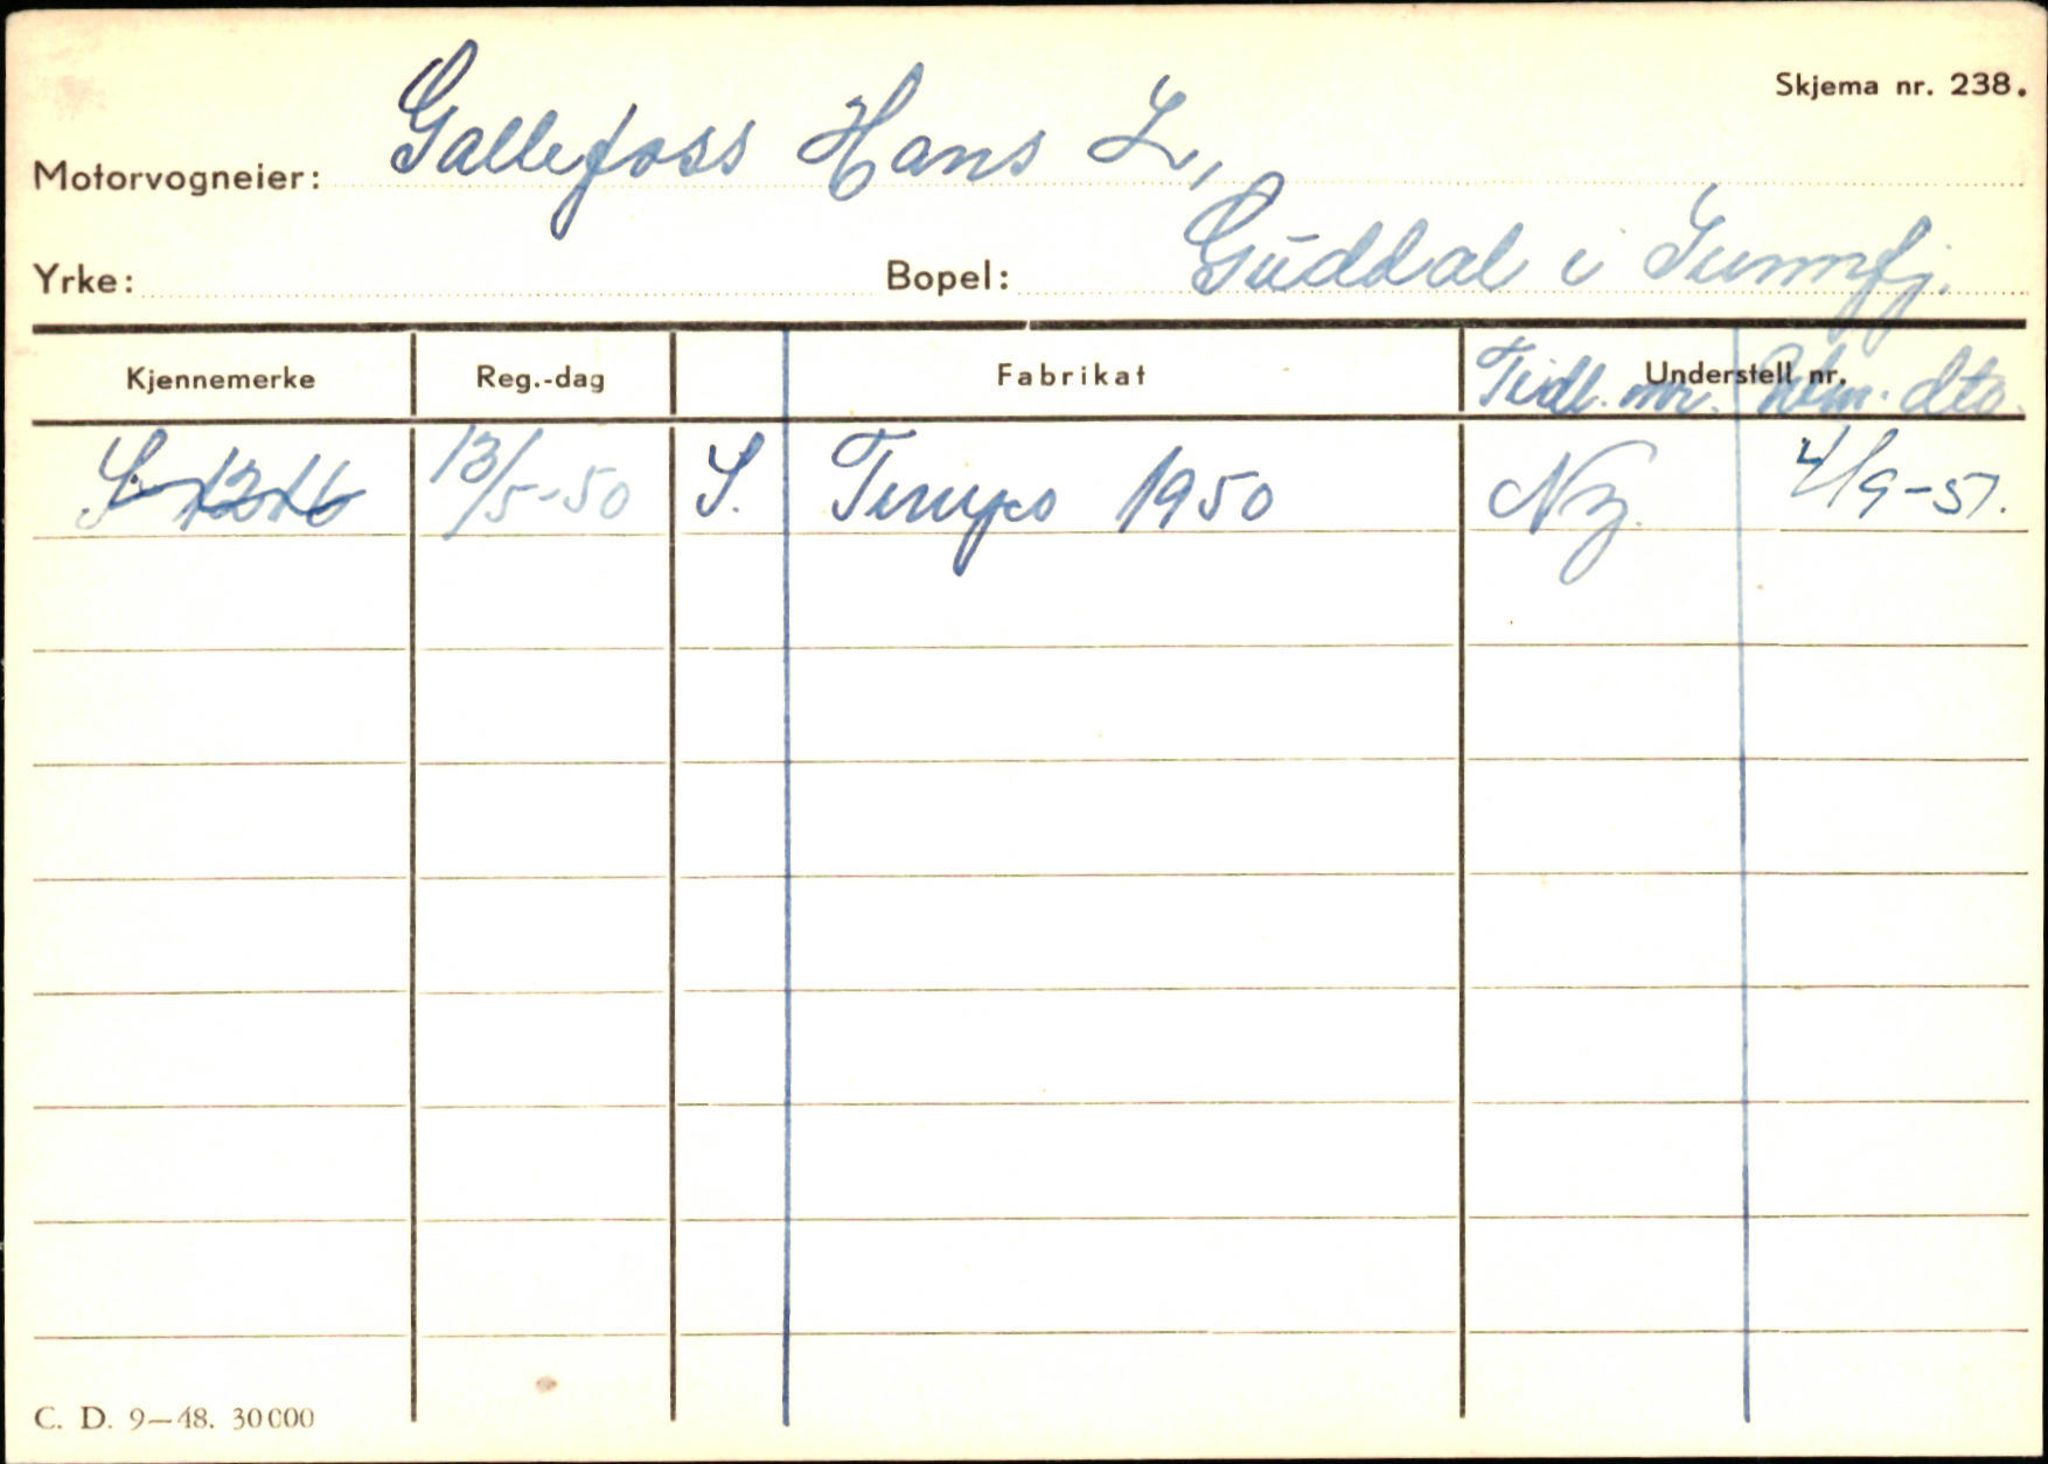 Skjema nr. 238.
Motorvogneier: Gallefoss Hans L,
Yrke: Bopel: Guddal i Sunnfj.
Kjennemerke Reg.-dag Fabrikat Understell nr. Tidl. nr. dto.
S-1216 13/5-50 S. Tempo 1950 Ny. 4/9-51.
C. D. 9—48. 30000